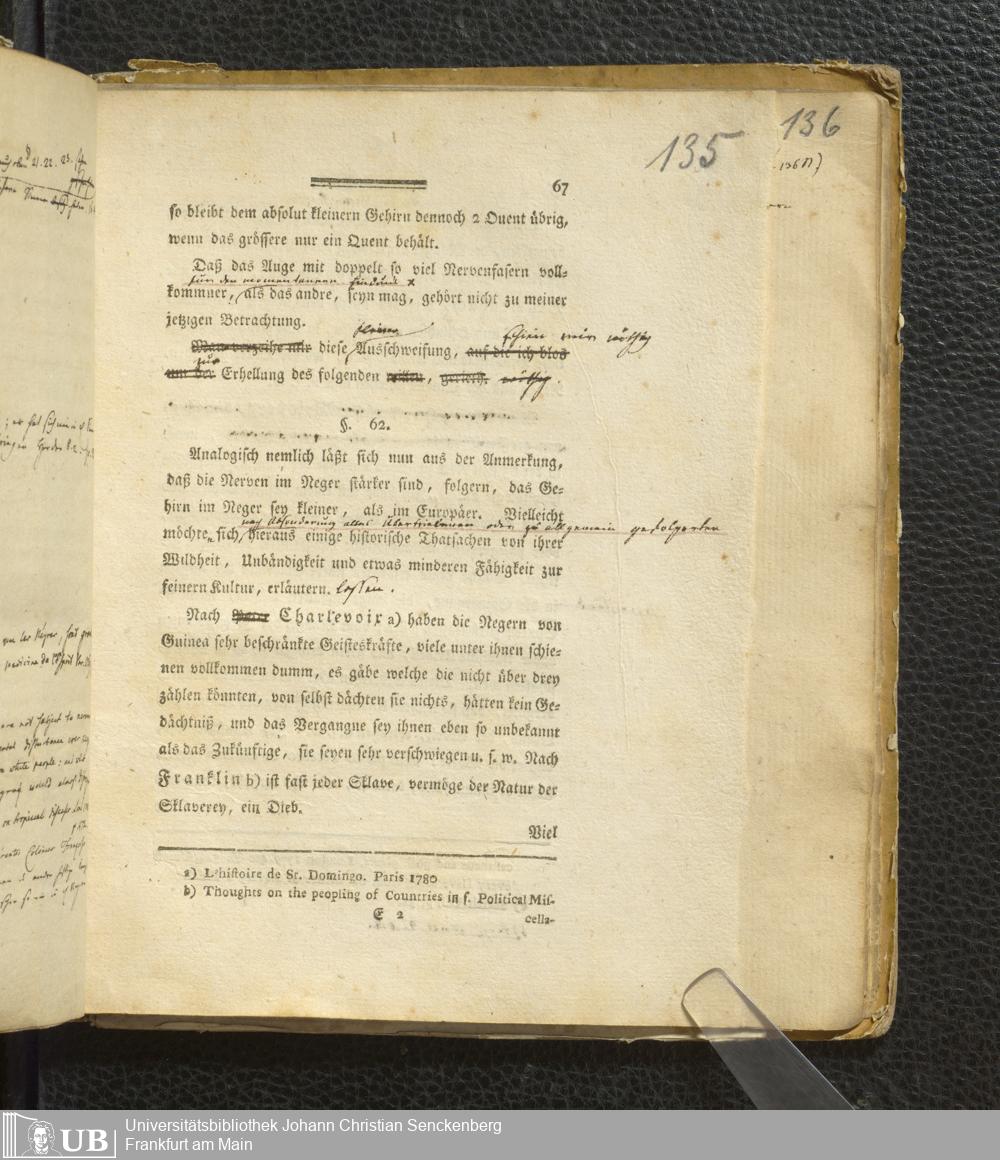 135
136
136 n)
67
so bleibt dem absolut kleinern Gehirn dennoch 2 Quent übrig,
wenn das grössere nur ein Quent behält.
Daß das Auge mit doppelt so viel Nervenfasern voll-
für den momentanen Eindruck x
kommner, als das andre, seyn mag, gehört nicht zu meiner
jetzigen Betrachtung.
kleine schien mir nöthig
Man verzeihe mir diese Ausschweifung, auf die ich blos
zur
um der Erhellung des folgenden willen, gerieth. nöthig.
§. 62.
Analogisch nemlich läßt sich nun aus der Anmerkung,
daß die Nerven im Neger stärker sind, folgern, das Ge-
hirn im Neger sey kleiner, als im Europäer. Vielleicht
nach Absonderung alles Übertriebenen oder zu allgemein gefolgerten
möchte sich hieraus einige historische Thatsachen von ihrer
Wildheit, Unbändigkeit und etwas minderen Fähigkeit zur
feinern Kultur, erläutern. lassen.
Nach Charlevoix a) haben die Negern von
Guinea sehr beschränkte Geisteskräfte, viele unter ihnen schie-
nen vollkommen dumm, es gäbe welche die nicht über drey
zählen könnten, von selbst dächten sie nichts, hätten kein Ge-
dächtniß, und das Vergangne sey ihnen eben so unbekannt
als das Zukünftige, sie seyen sehr verschwiegen u. s. w. Nach
Franklin b) ist fast jeder Sklave, vermöge der Natur der
Sklaverey, ein Dieb.
Viel
a) L'histoire de St. Domingo. Paris 1780
b) Thoughts on the peopling of Countries in s. Political Mis-
E 2
cella-
UB
Universitätsbibliothek Johann Christian Senckenberg
Frankfurt am Main